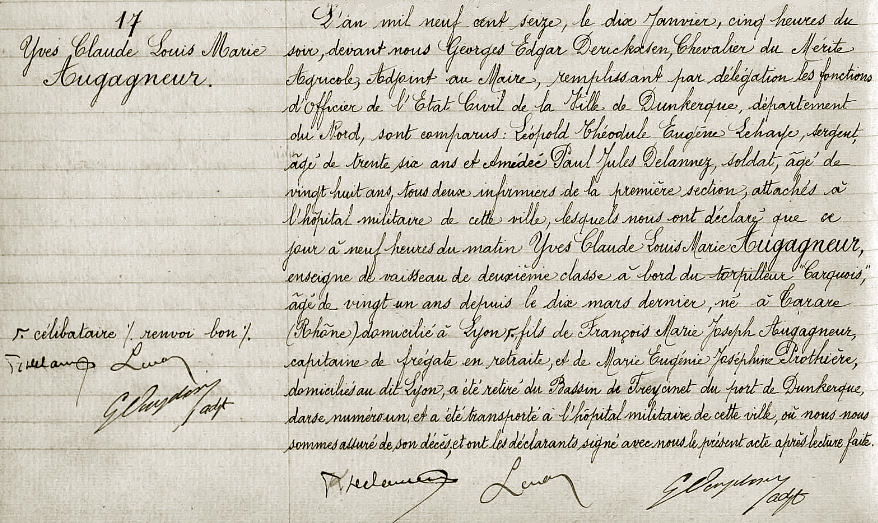 17
Yves Claude Louis Marie
Augagneur.
L'an mil neuf cent seize, le dix Janvier, cinq heures du
soir, devant nous Georges Edgar Deruckasen, Chevalier du Mérite
Agricole, Adjoint au Maire, remplissant par délégation les fonctions
d'Officier de l'Etat Civil de la Ville de Dunkerque, département
du Nord, sont comparus: Léopold Théodule Eugène Lehaye, sergent,
âgé de trente six ans et Amédée Paul Jules Delannez, soldat, âgé de
vingt huit ans, tous deux infirmiers de la première section, attachés à
l'hôpital militaire de cette ville, lesquels nous ont déclaré que ce
jour à neuf heures du matin Yves Claude Louis Marie Augagneur,
enseigne de vaisseau de deuxième classe à bord du torpilleur "Carquois",
âgé de vingt un ans depuis le dix mars dernier, né à Tarare
(Rhône) domicilié à Lyon, fils de François Marie Joseph Augagneur,
célibataire ./. renvoi bon ./.
capitaine de frégate en retraite, et de Marie Eugénie Joséphine Prothière,
domiciliés au dit Lyon, a été retiré du Bassin de Freycinet du port de Dunkerque,
darse numéro un, et a été transporté à l'hôpital militaire de cette ville, où nous nous
sommes assuré de son décès, et ont les déclarants signé avec nous le présent acte après lecture faite.
adjt
adjt